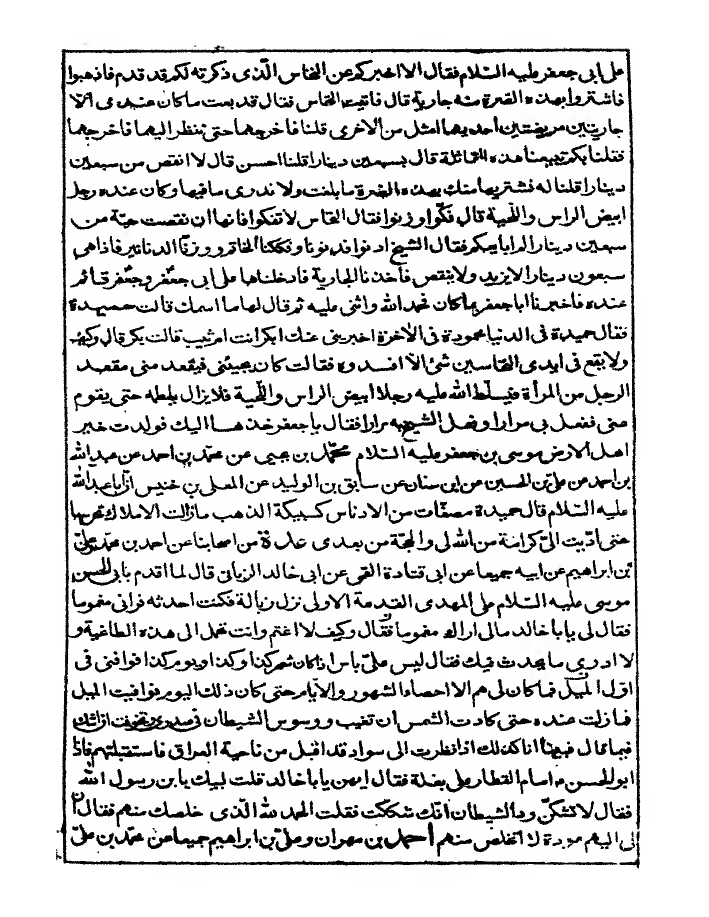 على ابى جعفر عليه السّلام فقال الا اخبركم عن النخاس الّذى ذكرته لكم قد قدم فاذهبوا
فاشتروا بهذه الصرة منه جارية قال فاتينا النخاس فقال قد بعت ما كان عندى الّا
جاريتين مريضتين احديهما امثل من الاخرى قلنا فاخرجهما حتى ننظر اليهما فاخرجهما
فقلنا بكم تبيعنا هذه المتماثلة قال بسبعين دينارا قلنا احسن قال لا انقص من سبعين
دينارا قلنا له نشتريها منك بهذه الصّرة ما بلغت ولا ندرى ما فيها وكان عنده رجل
ابيض الراس واللّحية قال فكّوا وزنوا فقال النخاس لا تفكوا فانها ان نقصت حبّة من
سبعين دينارا لم ابايعكم فقال الشيخ ادنوا فدنونا وفككنا الخاتم ووزنّا الدنانير فاذا هى
سبعون دينارا لا يزيد ولا ينقص فاخذنا الجارية فادخلناها على ابى جعفر وجعفر قائم
عنده فاخبرنا ابا جعفر بما كان فحمد الله واثنى عليه ثم قال لها ما اسمك قالت حميدة
فقال حميدة فى الدنيا محمودة فى الاخرة اخبرينى عنك ابكر انت ام ثيب قالت بكر قال وكيف
ولا يقع فى ايدى النخاسين شئ الّا افسدوه فقالت كان يجيئنى فيقعد منى مقعد
الرجل من المرأة فيسلّط الله عليه رجلا ابيض الراس واللّحية فلا يزال يلطمه حتى يقوم
عنى ففعل بى مرارا وفعل الشيخ به مرارا فقال يا جعفر خذها اليك فولدت خير
اهل الارض موسى بن جعفر عليه السّلام محمّد بن يحيى عن محمّد بن احمد عن عبد الله
بن احمد عن علىّ بن الحسين عن ابن سنان عن سابق بن الوليد عن المعلى بن خنيس ان ابا عبد الله
عليه السّلام قال حميدة مصفّاة من الادناس كسبيكة الذهب ما زالت الاملاك تحرسها
حتى ادّيت الىّ كرامة من الله لى والحجّة من بعدى عدّة من اصحابنا عن احمد بن محمّد وعلىّ
بن ابراهيم عن ابيه جميعا عن ابى قتادة القمى عن ابى خالد الزبالى قال لما اقدم بابى الحسن
موسى عليه السّلام على المهدى القدمة الاولى نزل زبالة فكنت احدثه فرانى مغموما
فقال لى يا با خالد مالى اراك مغموما فقال وكيف لا اغتم وانت تحمل الى هذه الطاغية و
لا ادرى ما يحدث فيك فقال ليس علىّ باس اذا كان شهر كذا وكذا ويوم كذا فوافنى فى
اوّل الميل فما كان لى هم الا احصاء الشهور والايّام حتى كان ذلك اليوم فوافيت الميل
فما زلت عنده حتى كادت الشمس ان تغيب ووسوس الشيطان فى صدرى وتخوفت ان اشك
فيما قال فبينا انا كذلك اذ نظرت الى سواد قد اقبل من ناحية العراق فاستقبلتهم فاذا
ابو الحسن ع امام القطار على بغلة فقال ايهن يا با خالد قلت لبيك يا بن رسول الله
فقال لا تشكّن ودّ الشيطان انّك شككت فقلت الحمد لله الّذى خلصك منهم فقال ان
لى اليهم عودة لا اتخلص منهم احمد بن مهران وعلىّ بن ابراهيم جميعا عن محمّد بن علىّ